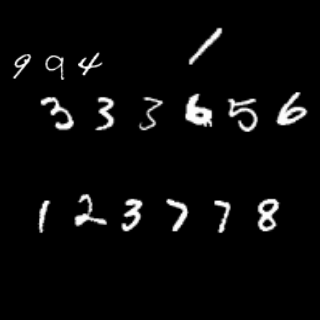 /
994
333656
123778